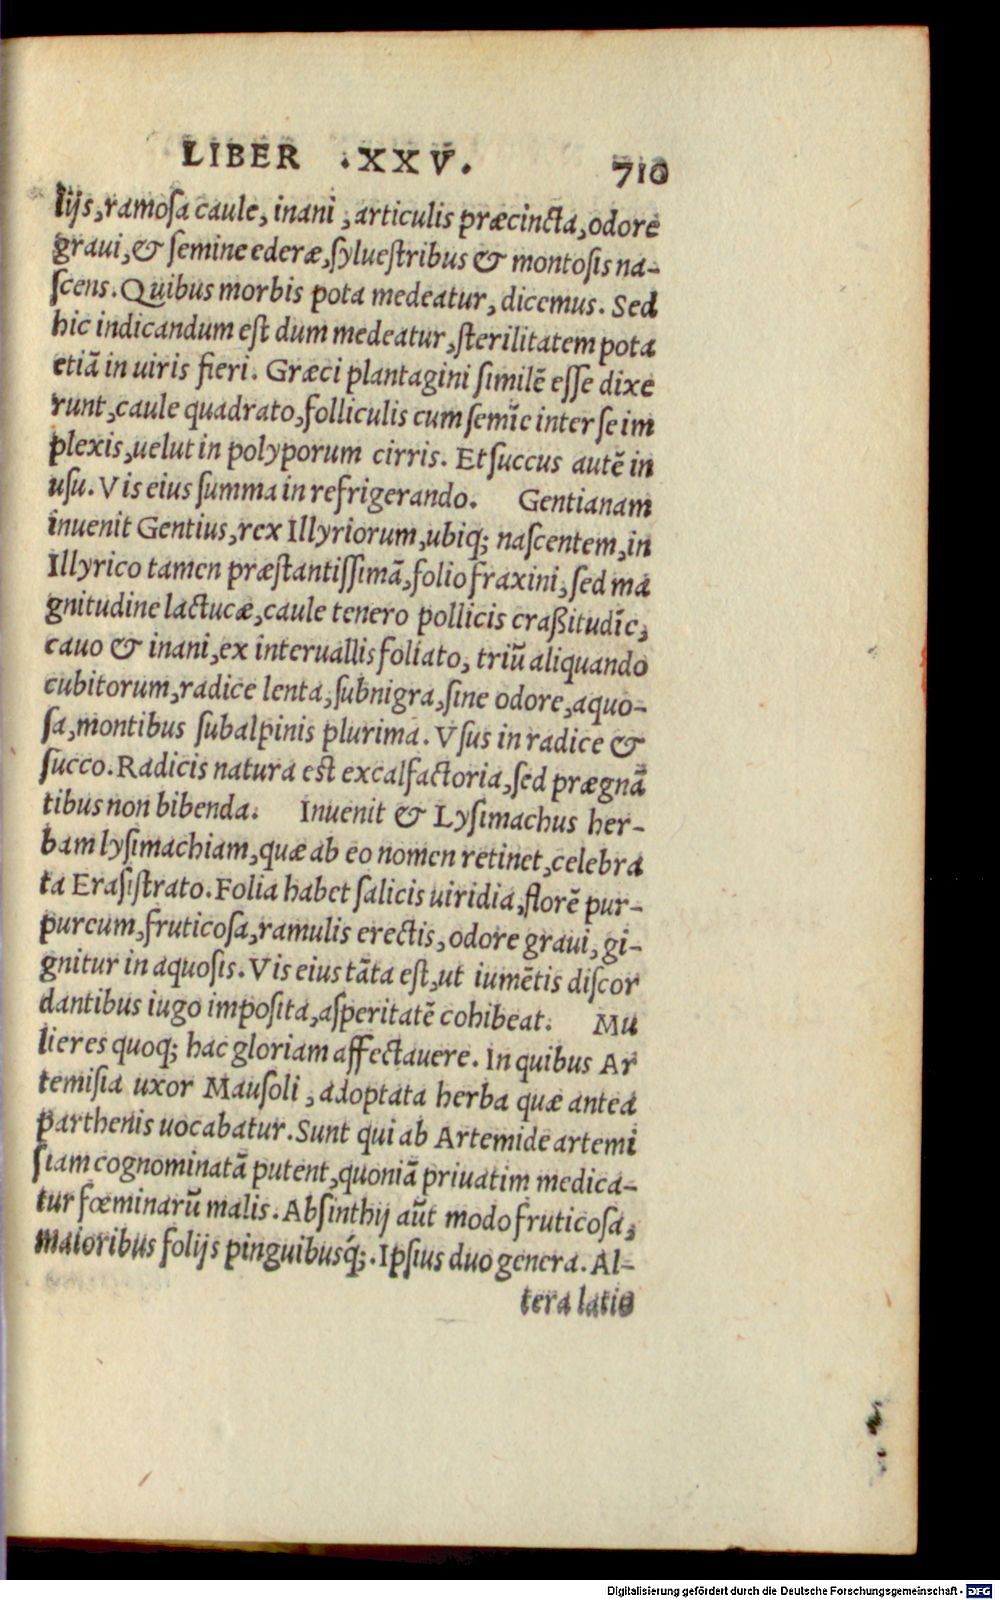 LIBER .XXV. 710
lijs,ramosa caule, inani, articulis præcincta, odore
graui,& semine ederæ,syluestribus & montosis na-
scens. Quibus morbis pota medeatur, dicemus. Sed
hic indicandum est dum medeatur,sterilitatem pota
etiã in uiris fieri. Græci plantagini similẽ esse dixe
runt,caule quadrato,folliculis cum semĩe inter se im
plexis,uelut in polyporum cirris. Et succus autẽ in
usu. Vis eius summa in refrigerando. Gentianam
inuenit Gentius,rex Illyriorum,ubiq; nascentem,in
Illyrico tamen præstantissimã,folio fraxini,sed ma
gnitudine lactucæ,caule tenero pollicis craßitudĩe,
cauo & inani,ex interuallis foliato, triũ aliquando
cubitorum,radice lenta,subnigra,sine odore,aquo-
sa,montibus subalpinis plurima. Vsus in radice &
succo. Radicis natura est excalfactoria,sed prægnã
tibus non bibenda. Inuenit & Lysimachus her-
bam lysimachiam,quæ ab eo nomen retinet,celebra
ta Erasistrato. Folia habet salicis uiridia,florẽ pur-
pureum,fruticosa,ramulis erectis,odore graui, gi-
gnitur in aquosis. Vis eius tãta est,ut iumẽtis discor
dantibus iugo imposita,asperitatẽ cohibeat. Mu
lieres quoq; hac gloriam affectauere. In quibus Ar
temisia uxor Mausoli, adoptata herba quæ antea
parthenis uocabatur. Sunt qui ab Artemide artemi
siam cognominatã putent,quoniã priuatim medica-
tur fœminarũ malis. Absinthij aũt modo fruticosa,
maioribus folijs pinguibusq́;. Ipsius duo genera. Al-
tera latio
Digitalisierung gefördert durch die Deutsche Forschungsgemeinschaft - DFG